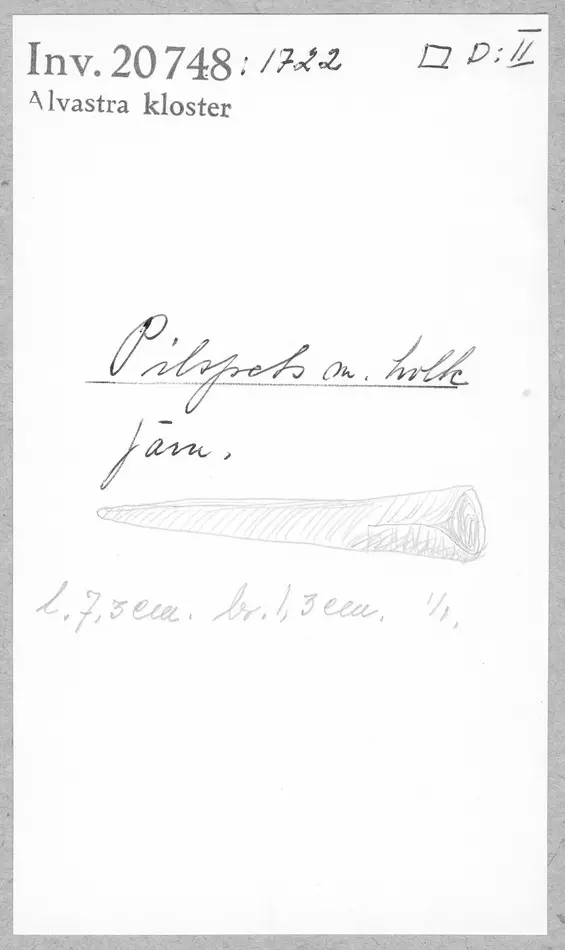 Inv. 20748: 1722 □ D: II
Alvastra kloster
Pilspets m. holk
järn.
l. 7,3 cm. br. 1,3 cm. 1/1.